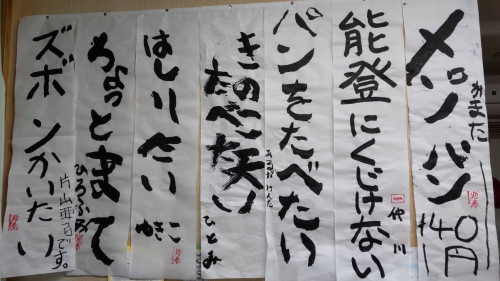 メロンパン
140円
おまた
能登にくじけない
仲川
パンをたべたい
きのこ
たべた笑い
ひとみ
はしりたい
ゆきこ
ちょっとまって
ひろふみ
ズボンかいたい
片山亜司です。